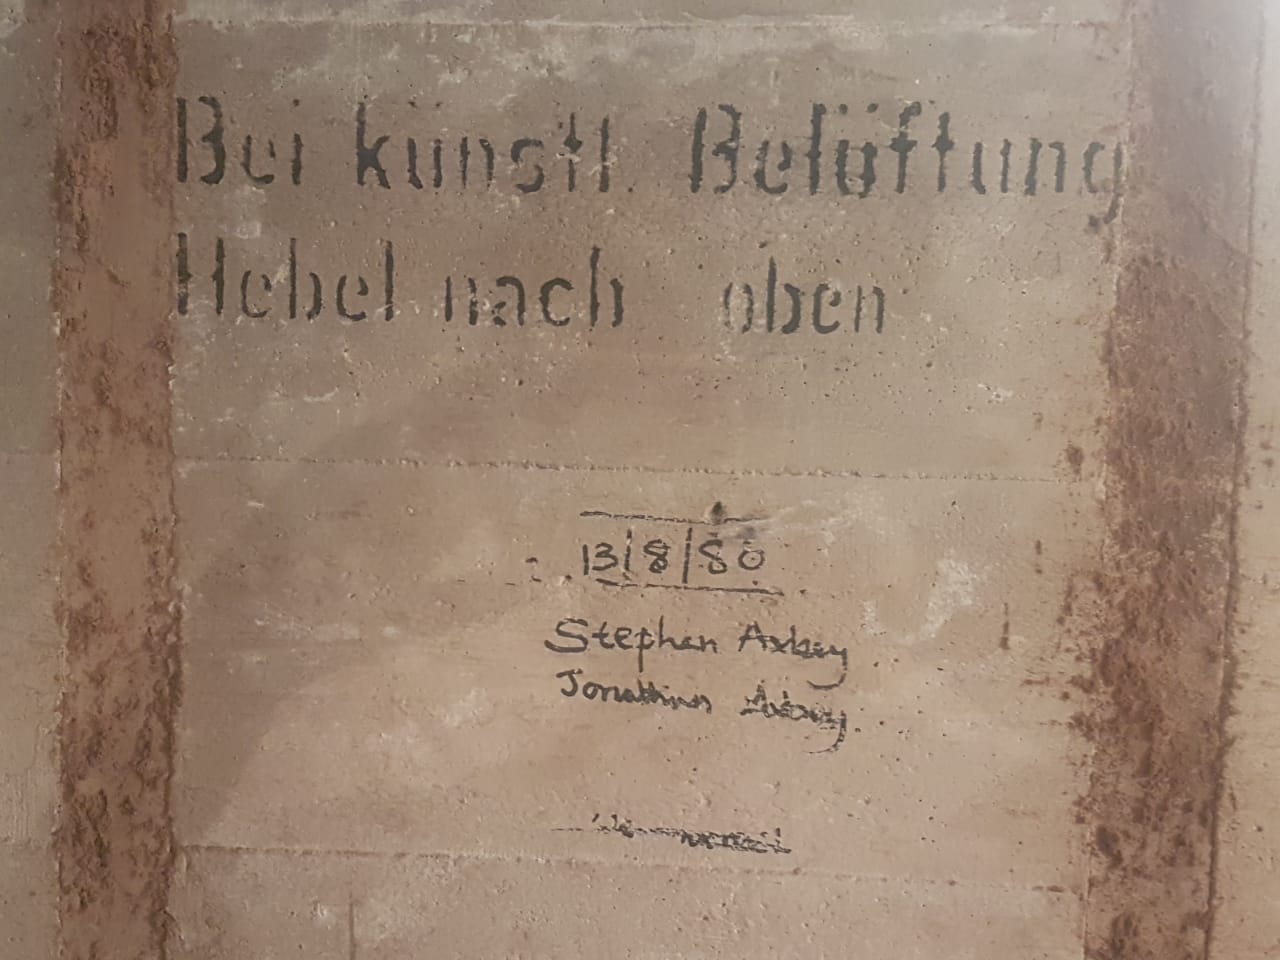 Bei künstl. Belüftung
Hebel nach oben
13/8/80
Stephen Axbey
Jonathan